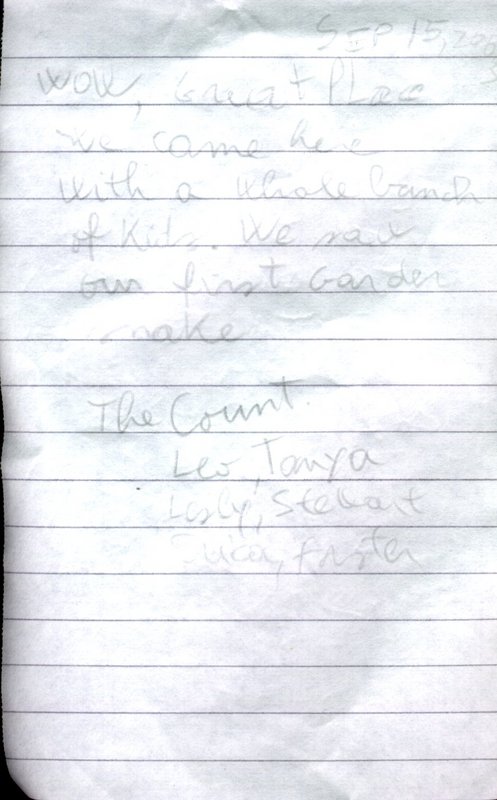 SEP 15, 200
WOW, Great Place
We came here
with a whole bunch
of Kids. We saw
our first Garder
snake
The Count.
Leo, Tanya
Lesly, Stewart